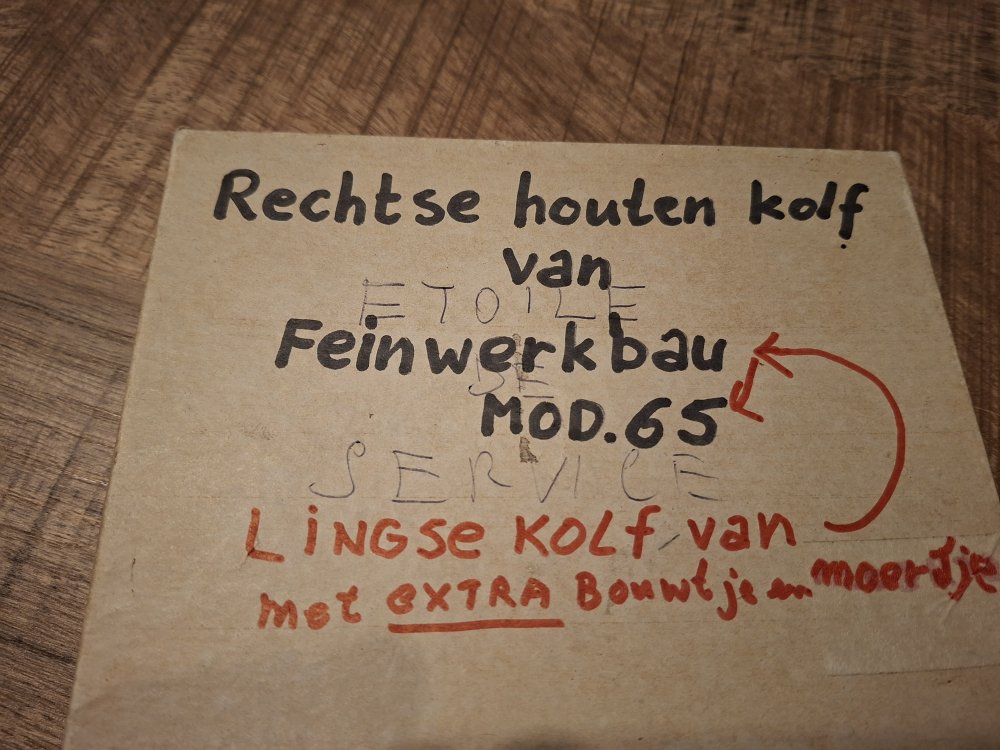 Rechtse houten kolf
van
ETOILE
Feinwerkbau
DE
MOD.65
SERVICE
LINGSe KOLf van
met eXTRA Bouwtje en moertje